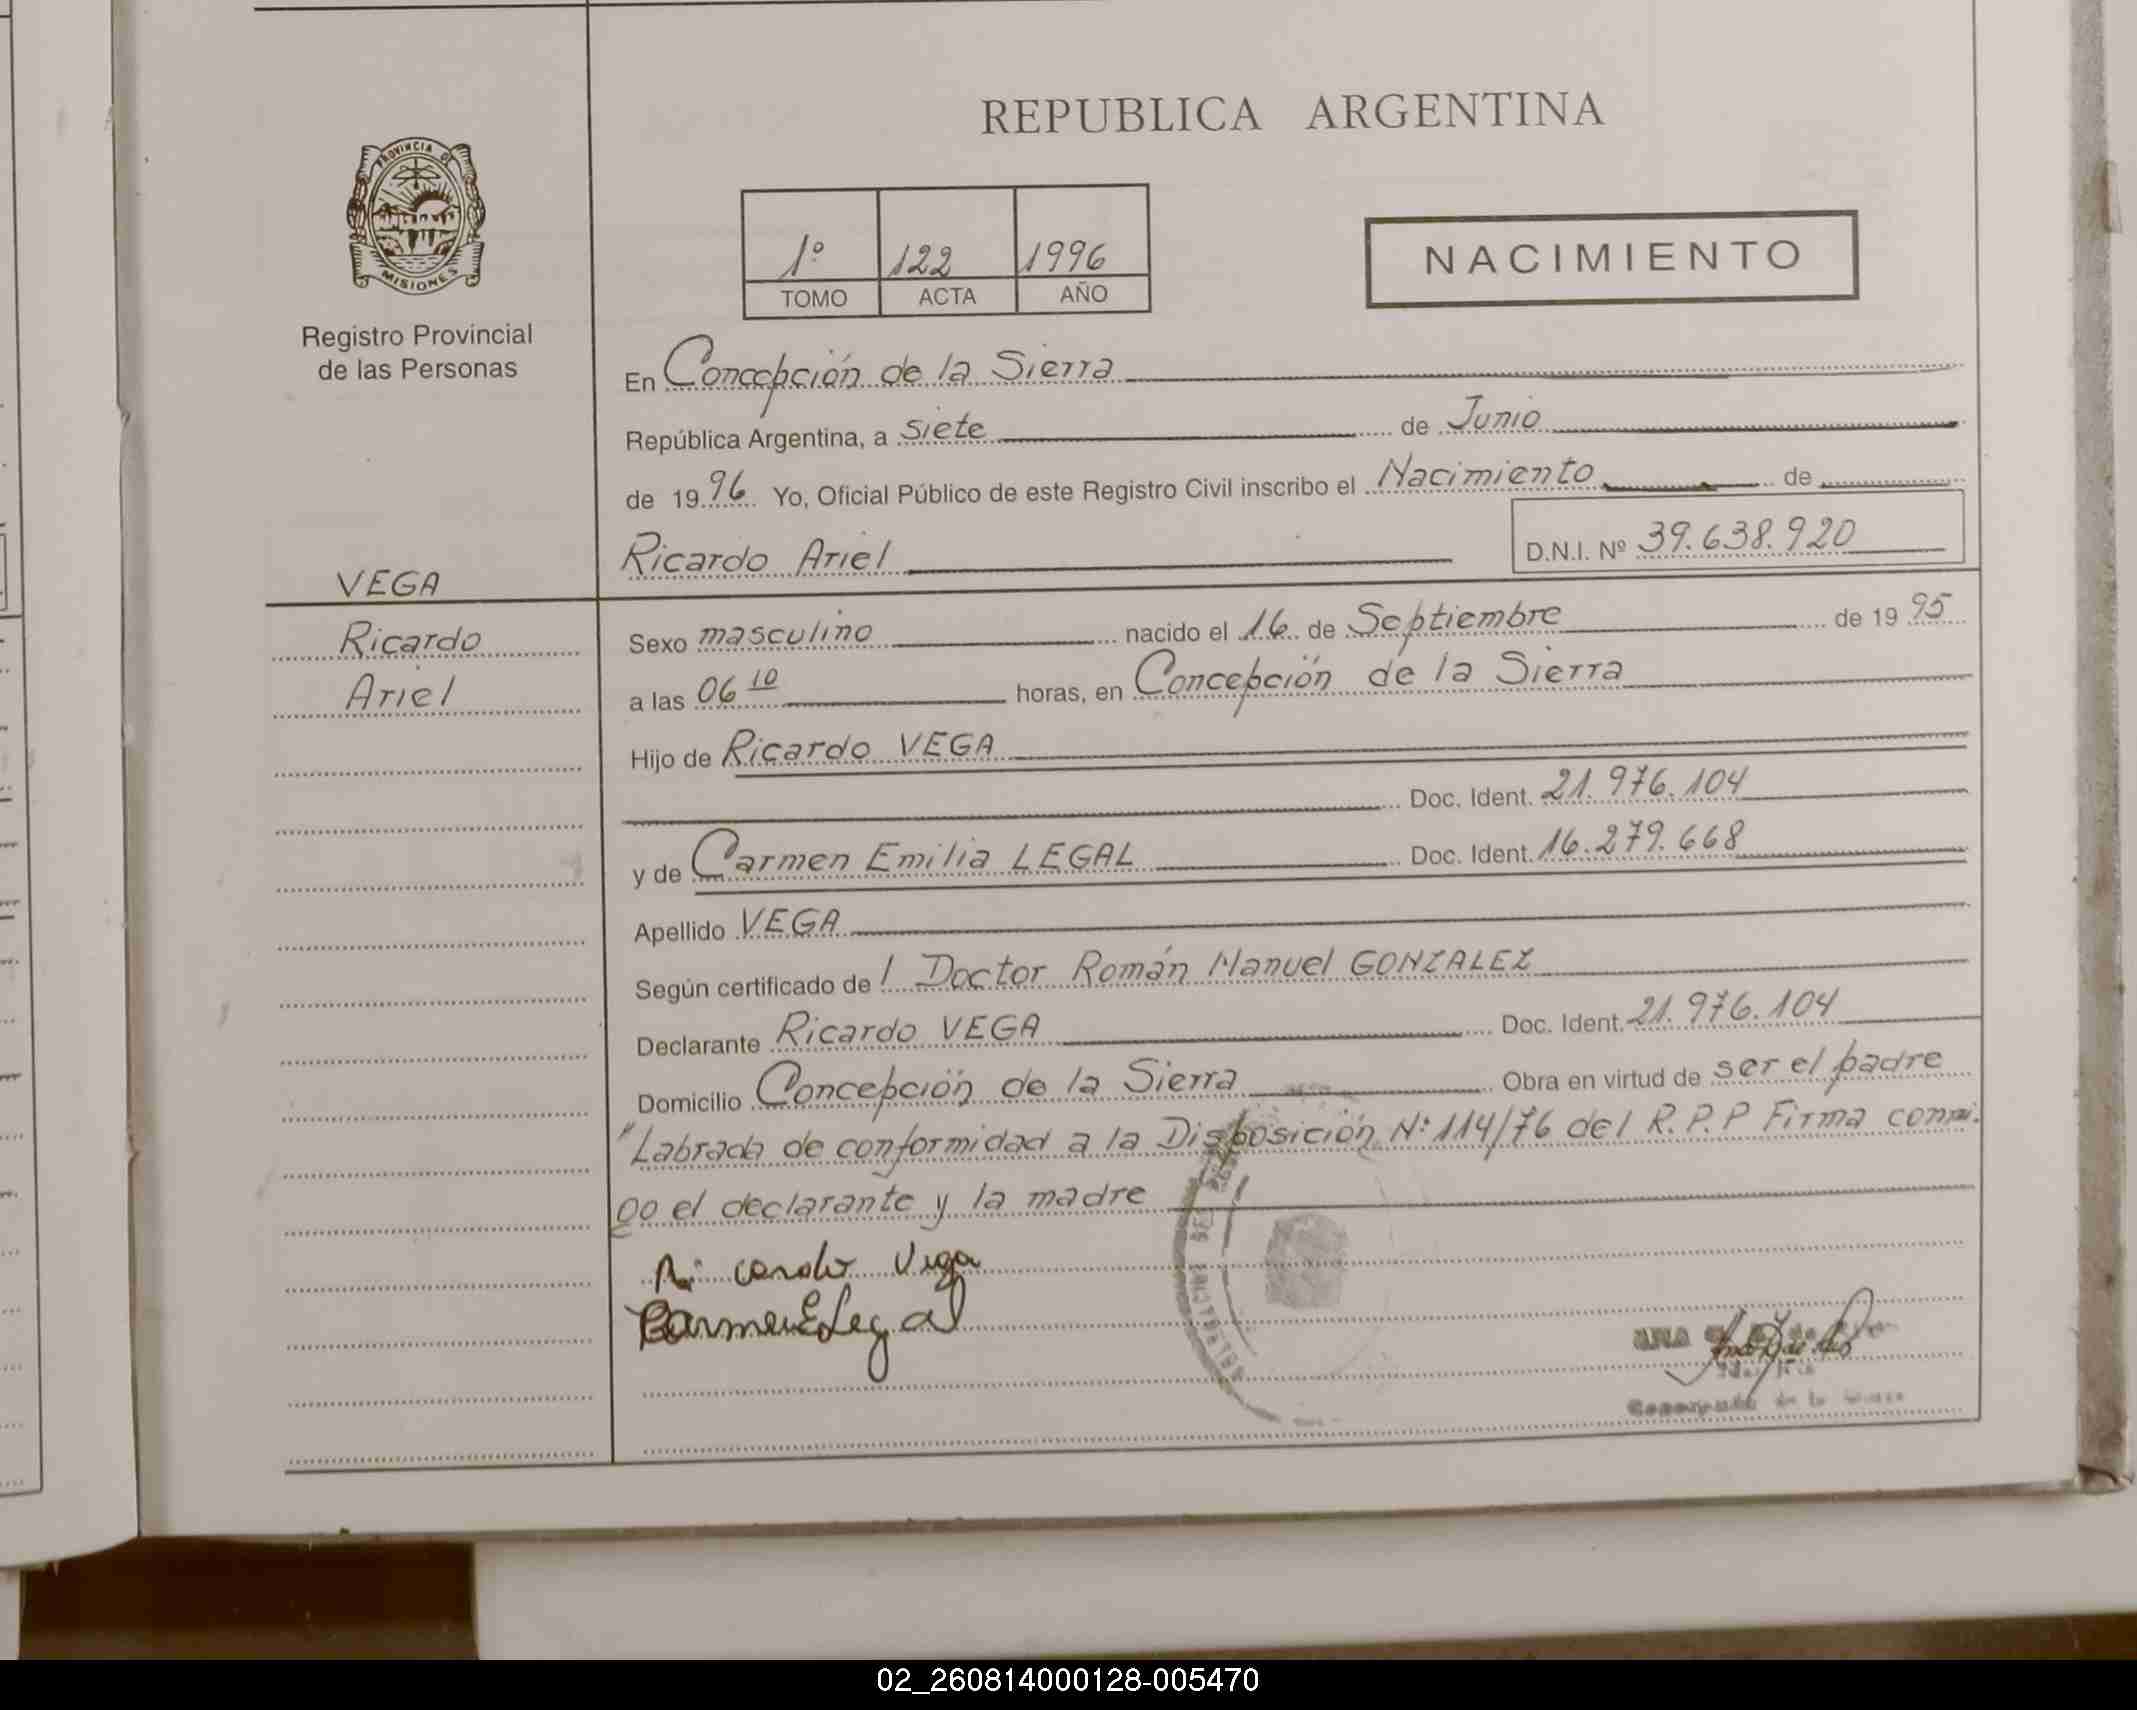 REPUBLICA ARGENTINA
PROVINCIA DE
MISIONES
Registro Provincial
de las Personas
1º 122 1996
TOMO ACTA AÑO
NACIMIENTO
En Concepción de la Sierra
República Argentina, a siete de Junio
de 1996 Yo, Oficial Público de este Registro Civil inscribo el Nacimiento de
Ricardo Ariel D.N.I. Nº 39.638.920
VEGA
Ricardo
Ariel
Sexo masculino nacido el 16 de Septiembre de 1995
a las 06 10 horas, en Concepción de la Sierra
Hijo de Ricardo VEGA
Doc. Ident. 21.976.104
y de Carmen Emilia LEGAL Doc. Ident. 16.279.668
Apellido VEGA
Según certificado de l Doctor Román Manuel GONZALEZ
Declarante Ricardo VEGA Doc. Ident. 21.976.104
Domicilio Concepción de la Sierra Obra en virtud de ser el padre
"Labrada de conformidad a la Disposición Nº 114/76 del R.P.P Firma conmi.
go el declarante y la madre
Ricardo Vega
Carmen E Legal
02_260814000128-005470